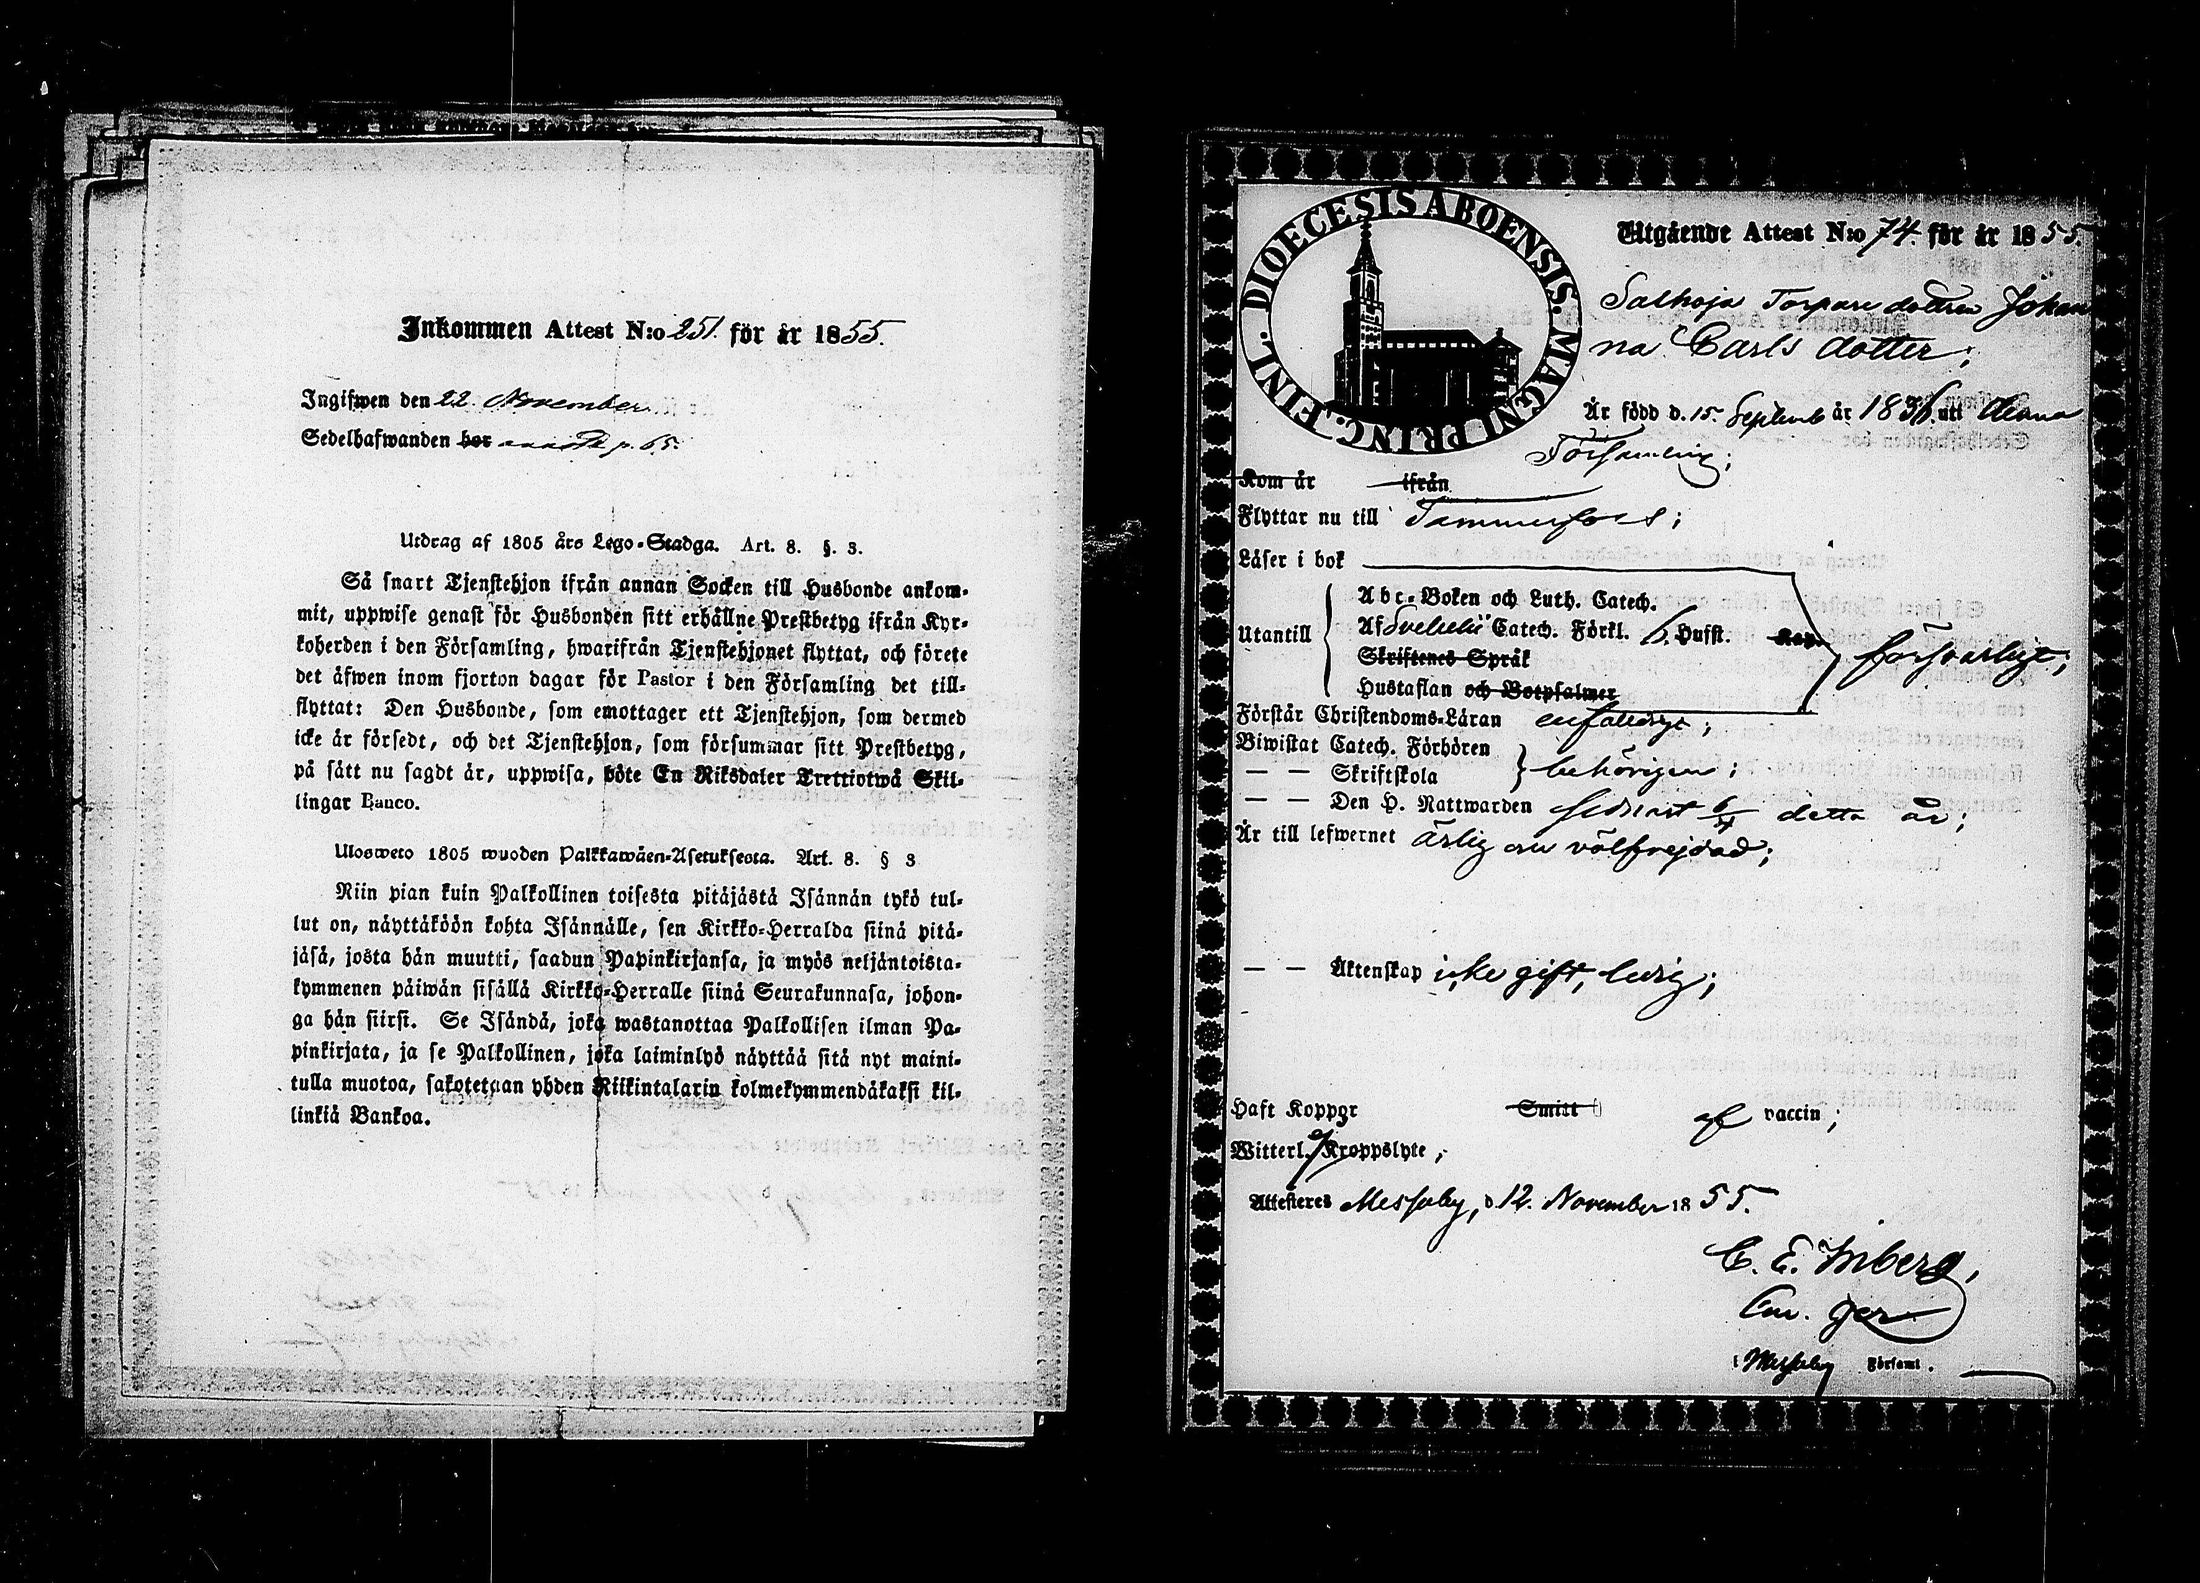 Inkommen Attest N:o 251. för år 1855.
Ingifwen den 22 November
Sedelhafwanden bor p. 65.
Utdrag af 1805 års Lego-Stadga. Art. 8. §. 3.
Så snart Tjenstehjon ifrån annan Socken till Husbonde ankom-
mit, uppwise genast för Husbonden sitt erhållne Prestbetyg ifrån Kyr-
koherden i den Församling, hwarifrån Tjenstehjonet flyttat, och förete
det äfwen inom fjorton dagar för Pastor i den Församling det till-
flyttat: Den Husbonde, som emottager ett Tjenstehjon, som dermed
icke är försedt, och det Tjenstehjon, som försummar sitt Prestbetyg,
på sätt nu sagdt är, uppwisa, böte En Riksdaler Trettiotwå Skil-
lingar Banco.
Ulosweto 1805 wuoden Palkkawäen-Asetuksesta. Art. 8. § 3
Niin pian kuin Palkollinen toisesta pitäjästä Isännän tykö tul-
lut on, näyttäköön kohta Isännälle, sen Kirkko-Herralda siinä pitä-
jäsä, josta hän muutti, saadun Papinkirjansa, ja myös neljäntoista-
kymmenen päiwän sisällä Kirkko-Herralle siinä Seurakunnasa, johon-
ga hän siirsi. Se Isändä, joka wastanottaa Palkollisen ilman Pa-
pinkirjata, ja se Palkollinen, joka laiminlyö näyttää sitä nyt maini-
tulla muotoa, sakotetaan yhden Riikintalarin kolmekymmendäkaksi kil-
linkiä Bankoa.
DIOECESIS ABOENSIS. MAGNI PRINC. FINL.
Utgående Attest N:o 74. för år 1855.
Salhoja Torpare dottren Johan
na Carls dotter;
Är född d. 15. Septemb år 1836. uti
Församling;
Kom år ifrån
Flyttar nu till Tammerfors;
Läser i bok
Utantill
Abc-Boken och Luth. Catech.
Af Svebelii Catech. Förkl. 6. Hufst. Kap.
Skriftenes Språk
Hustaflan och Botpsalmer
försvarligt;
Förstår Christendoms-Läran enfaldigt;
Biwistat Catech. Förhören
— — Skriftskola
behörigen;
— — Den H. Nattwarden sednast 6/4 detta år;
Är till lefwernet ärlig och välfrejdad;
— — Äktenskap icke gift, ledig;
Haft Koppor Smitt af vaccin;
Witterl. Kroppslyte,
Attesteres Messuby, d. 12. November 1855.
C. E. Inberg,
i Messuby Församl.